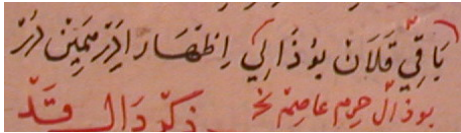 بَاقِيِّ قَلَانْ بُوذَالِي اِظْهَار اِدَرْ مِيمِينْ دُرُرْ
بوذال حرم عاصم نحْ ذكر دال قَدْ